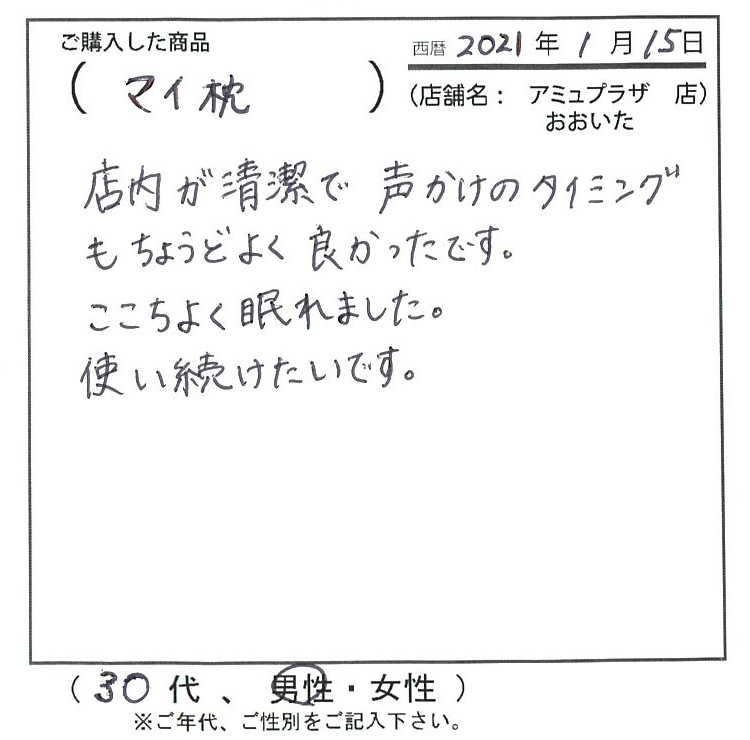 ご購入した商品
西暦 2021年 1月 15日
( マイ枕 )
(店舗名： アミュプラザ 店)
おおいた
店内が清潔で 声かけのタイミング
もちょうどよく 良かったです。
ここちよく眠れました。
使い続けたいです。
( 30代 、 男性・女性 )
※ご年代、ご性別をご記入下さい。